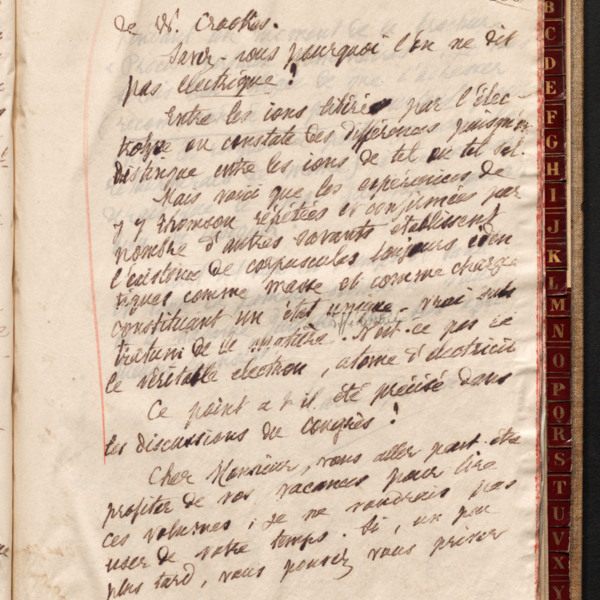 de W. Crookes.
Savez-vous pourquoi l'on ne dit
pas electrique ?
Entre les ions libérés par l'élec-
trolyse on constate des différences puisqu'on
distingue entre les ions de tel ou tel sel.
Mais voici que les expériences de
J J Thomson répétées et confirmées par
nombre d'autres savants établissent
l'existence de corpuscules toujours iden
tiques comme masse et comme charge
constituant un état vrai subs
tratum de la matière. N'est-ce pas là
le véritable electron, atome d'électricité
Ce point a t il été précisé dans
les discussions du congrès ?
Cher Monsieur, vous allez peut-être
profiter de vos vacances pour lire
ces volumes ; je ne voudrais pas
user de votre temps. Si, un peu
plus tard, vous pouvez vous priver
B
C
D
E
F
G
H
I
J
K
L
M
N
O
P
Q
R
S
T
U
V
X
Y